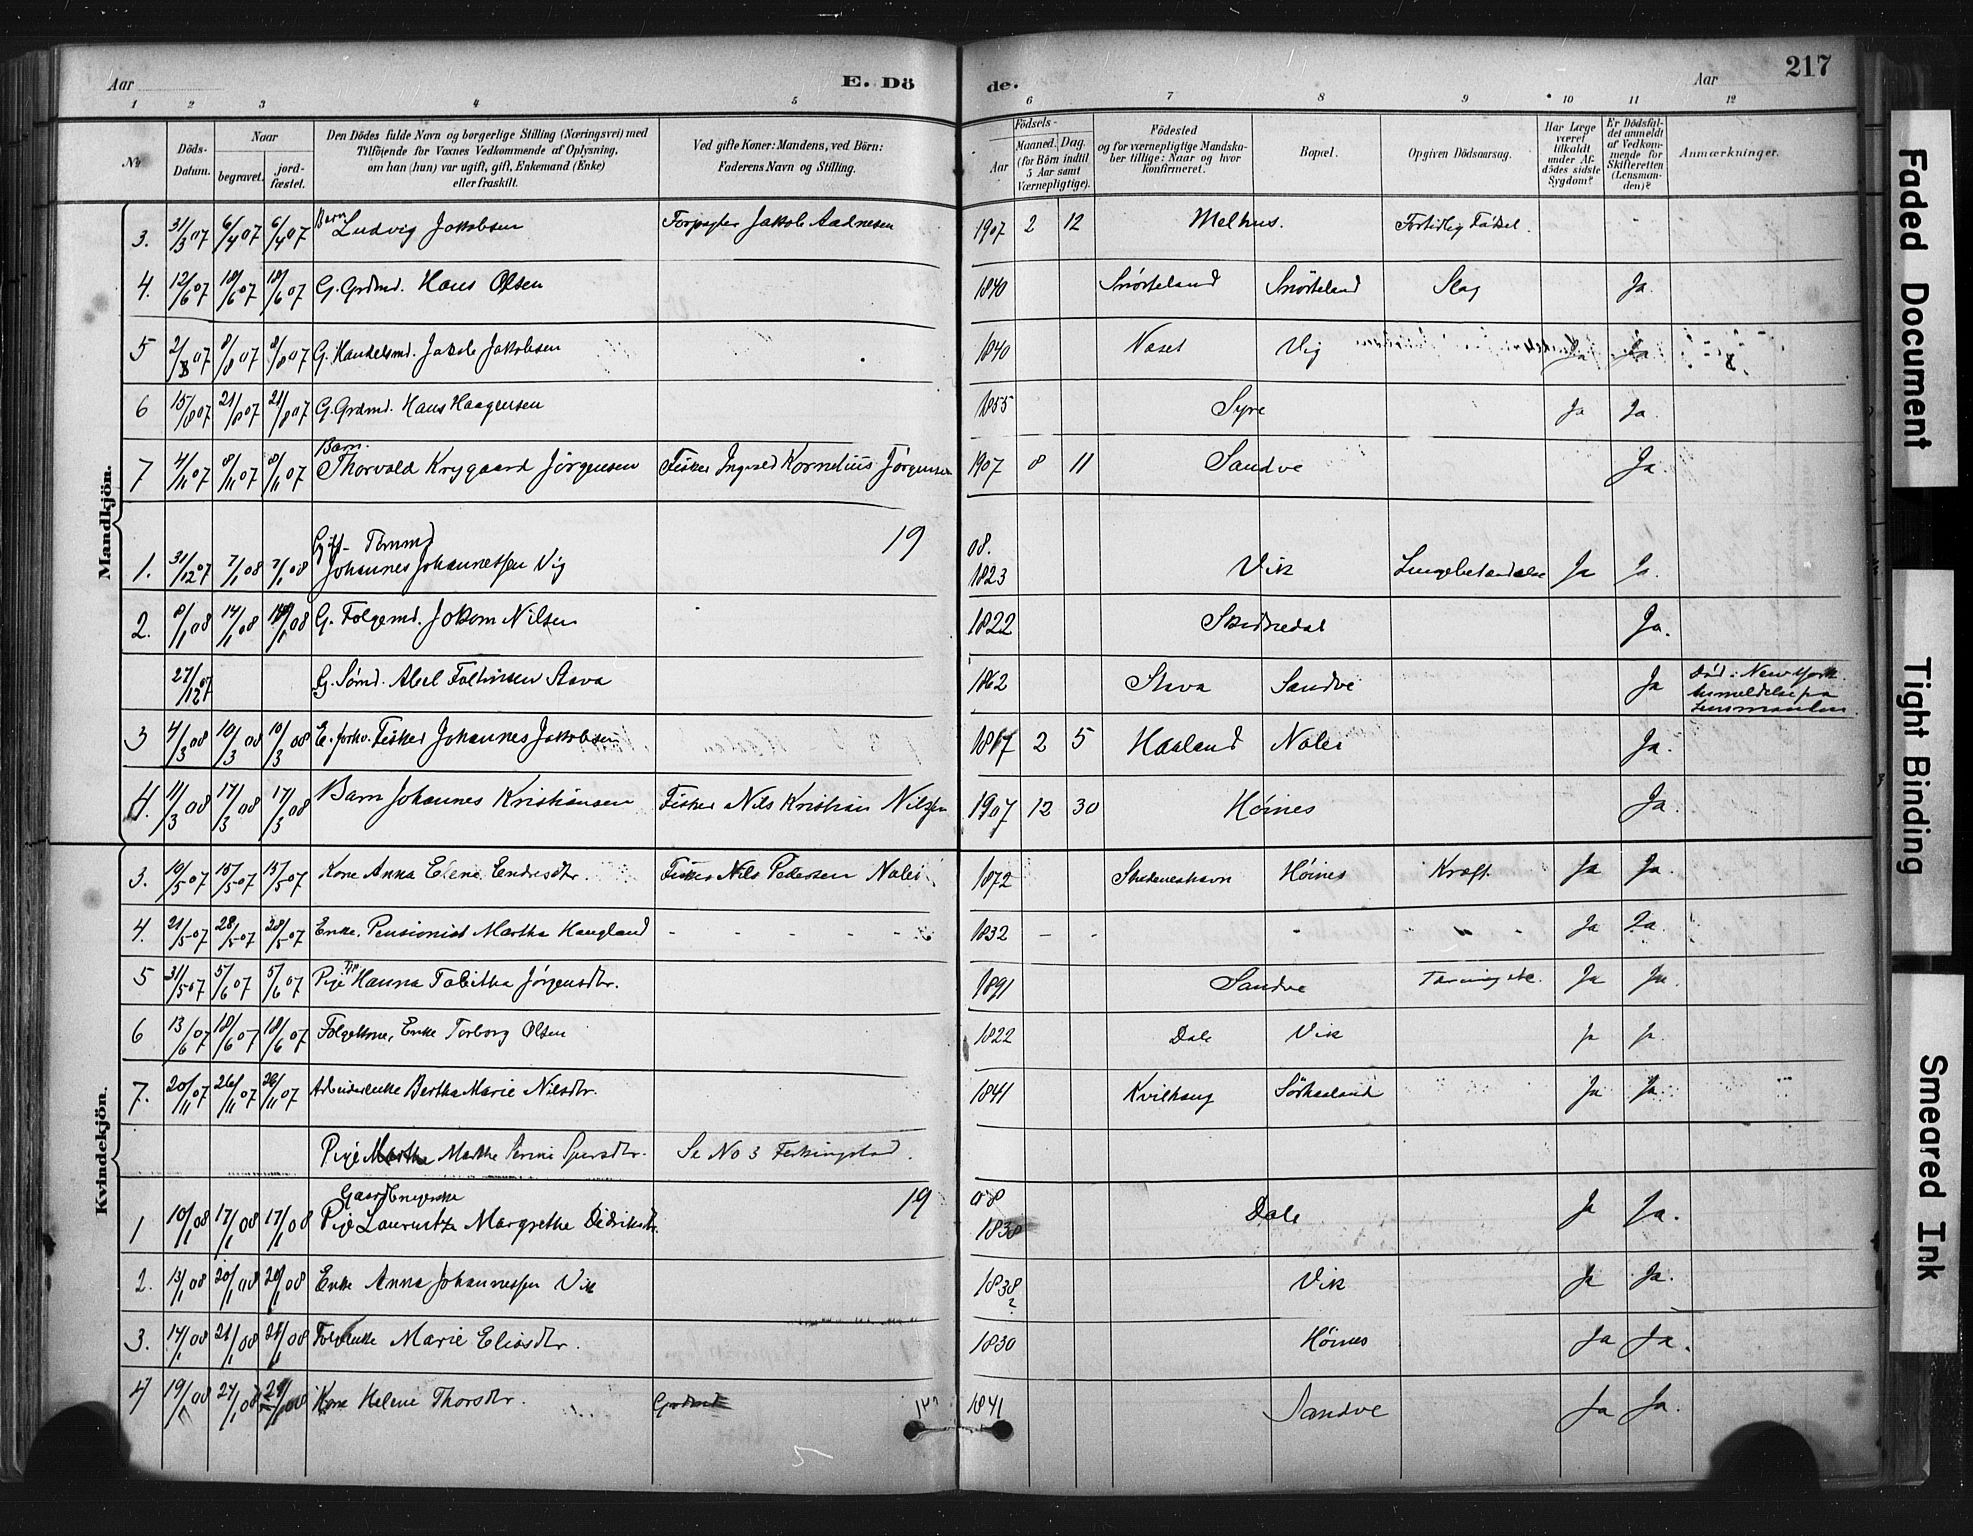 Aar
E. Dö
de.
Aar
217
1 2 3 4 5 6 7 8 9 10 11 12
No
Döds-Datum.
Naar
begravet.
jordfæstet.
Den Dödes fulde Navn og borgerlige Stilling (Næringsvei) med
Tilföiende for Voxnes Vedkommende af Oplysning,
om han (hun) var ugift, gift, Enkemand (Enke)
eller fraskilt.
Ved gifte Koner: Mandens, ved Börn:
Faderens Navn og Stilling.
Födsels-
Aar
Maaned. Dag
(for Börn indtil
5 Aar samt
Værnepligtige).
Födested
og for værnepligtige Mandskaber tillige: Naar og hvor
konfirmeret.
Bopæl.
Opgiven Dödsaarsag.
Har Læge
været
tilkaldt
under Afdödes sidste
Sygdom?
Er Dödsfaldet anmeldt
af Vedkommende for
Skifteretten
(Lensmanden)?
Anmærkninger.
Mandkjön.
3. 31/3 07 6/4 07 6/4 07 Barn Ludvig Jakobsen Forpagter Jakob Aadnesen 1907 2 12 Melhus. Fortidlig Födsel.
4. 12/6 07 18/6 07 18/6 07 G. Grdmd. Hans Olsen 1840 Snörteland Snörteland Slag Ja.
5 2/8 07 8/8 07 8/8 07 G. Handelsmd. Jakob Jakobsen 1840 Næset Vig Ja Ja
6 15/8 07 21/8 07 21/8 07 G. Grdmd. Hans Haagensen 1855 Syre Ja Ja.
7 4/11 07 8/11 07 8/11 07 Barn. Thorvald Krygaard Jörgensen Fisker Ingvald Kornelius Jörgensen 1907 8 11 Sandve Ja
19 08.
1. 31/12 07 7/1 08 7/1 08 Gift Tömmd Johannes Johannessen Vig 1823 Vik Lungebetændelse Ja Ja.
2. 8/1 08 14/1 08 14/1 08 G. Folgemd. Jokom Nilsen 1822 Skudnedal Ja.
27/12 07 G. Sömd. Abel Foltinsen Stava 1862 Stava Sandve Ja Död i New York. Anmeldelse fra Lensmanden
3 4/3 08 10/3 08 10/3 08 E. forhv. Fisker Johannes Jakobsen 1817 2 5 Haaland Nalei Ja.
4. 11/3 08 17/3 08 17/3 08 Barn Johannes Kristiansen Fisker Nils Kristian Nilssen 1907 12 30 Høines Ja
Kvindekjön.
3. 10/5 07 15/5 07 15/5 07 Kone Anna Elene Endresdtr. Fisker Nils Pedersen Nalei 1872 Skudeneshavn Høines Kræft. Ja Ja.
4. 21/5 07 28/5 07 28/5 07 Enke. Pensionist Martha Haugland 1832 Ja Ja
5 31/5 07 5/6 07 5/6 07 Pige Hanna Tabitha Jörgensdtr. 1891 Sandve Ja Ja.
6 13/6 07 18/6 07 18/6 07 Folgekone, Enke Torborg Olsen 1822 Dale Vik Ja Ja.
7. 20/11 07 26/11 07 26/11 07 Arbeiderenke Bertha Marie Nilsdtr. 1841 Kvilhaug Sörhaaland Ja Ja.
Pige Martha Marthe Serine Sjursdtr. Se No 3 Ferkingstad.
19 08
1 10/1 08 17/1 08 17/1 08 Pige Lauritze Margrethe Didriksdtr. 1838 Dale Ja Ja.
2. 13/1 08 20/1 08 20/1 08 Enke Anna Johannessen Vik 1838? Vik Ja Ja.
3. 14/1 08 21/1 08 21/1 08 Marie Eliasdtr. 1830 Høines Ja Ja.
4 19/1 08 27/1 08 Kone Helene Thorsdtr. 1841 Sandve Ja Ja.
Faded Document
Tight Binding
Smeared Ink